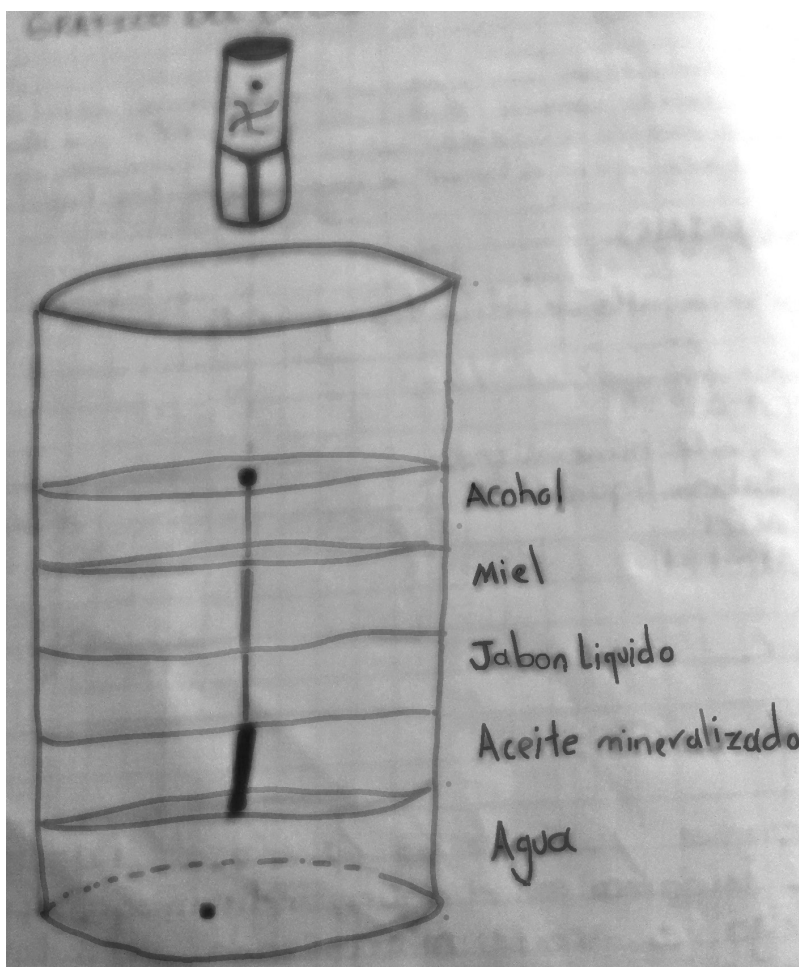 GRAFICO DEL
Acohol
Miel
Jabon liquido
Aceite mineralizado
Agua